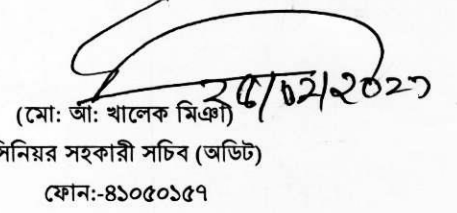 ২৫/০২/২০২১
(মো: আ: খালেক মিঞা)
সিনিয়র সহকারী সচিব (অডিট)
ফোন:-৪১০৫০১৫৭